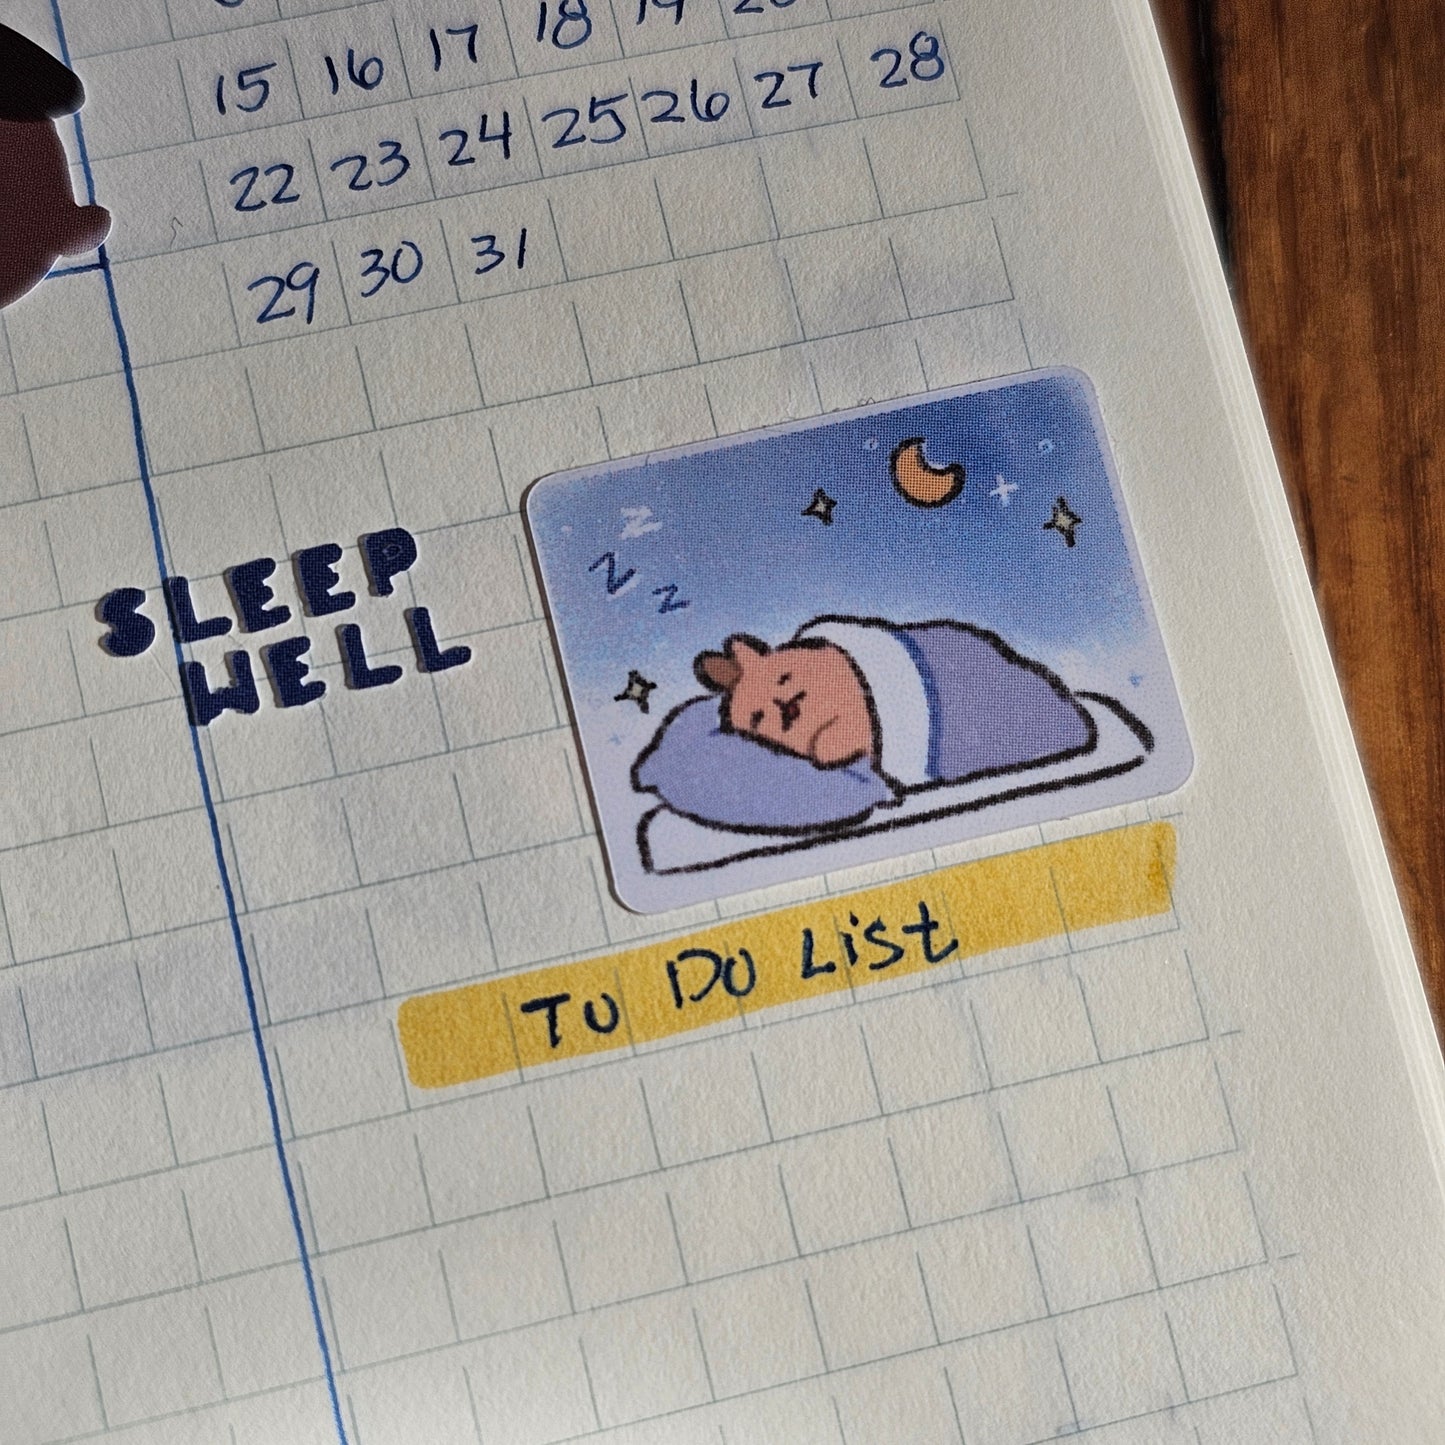 15 16 17 18 19 20
22 23 24 25 26 27 28
29 30 31
SLEEP
WELL
z
z
z
To Do List